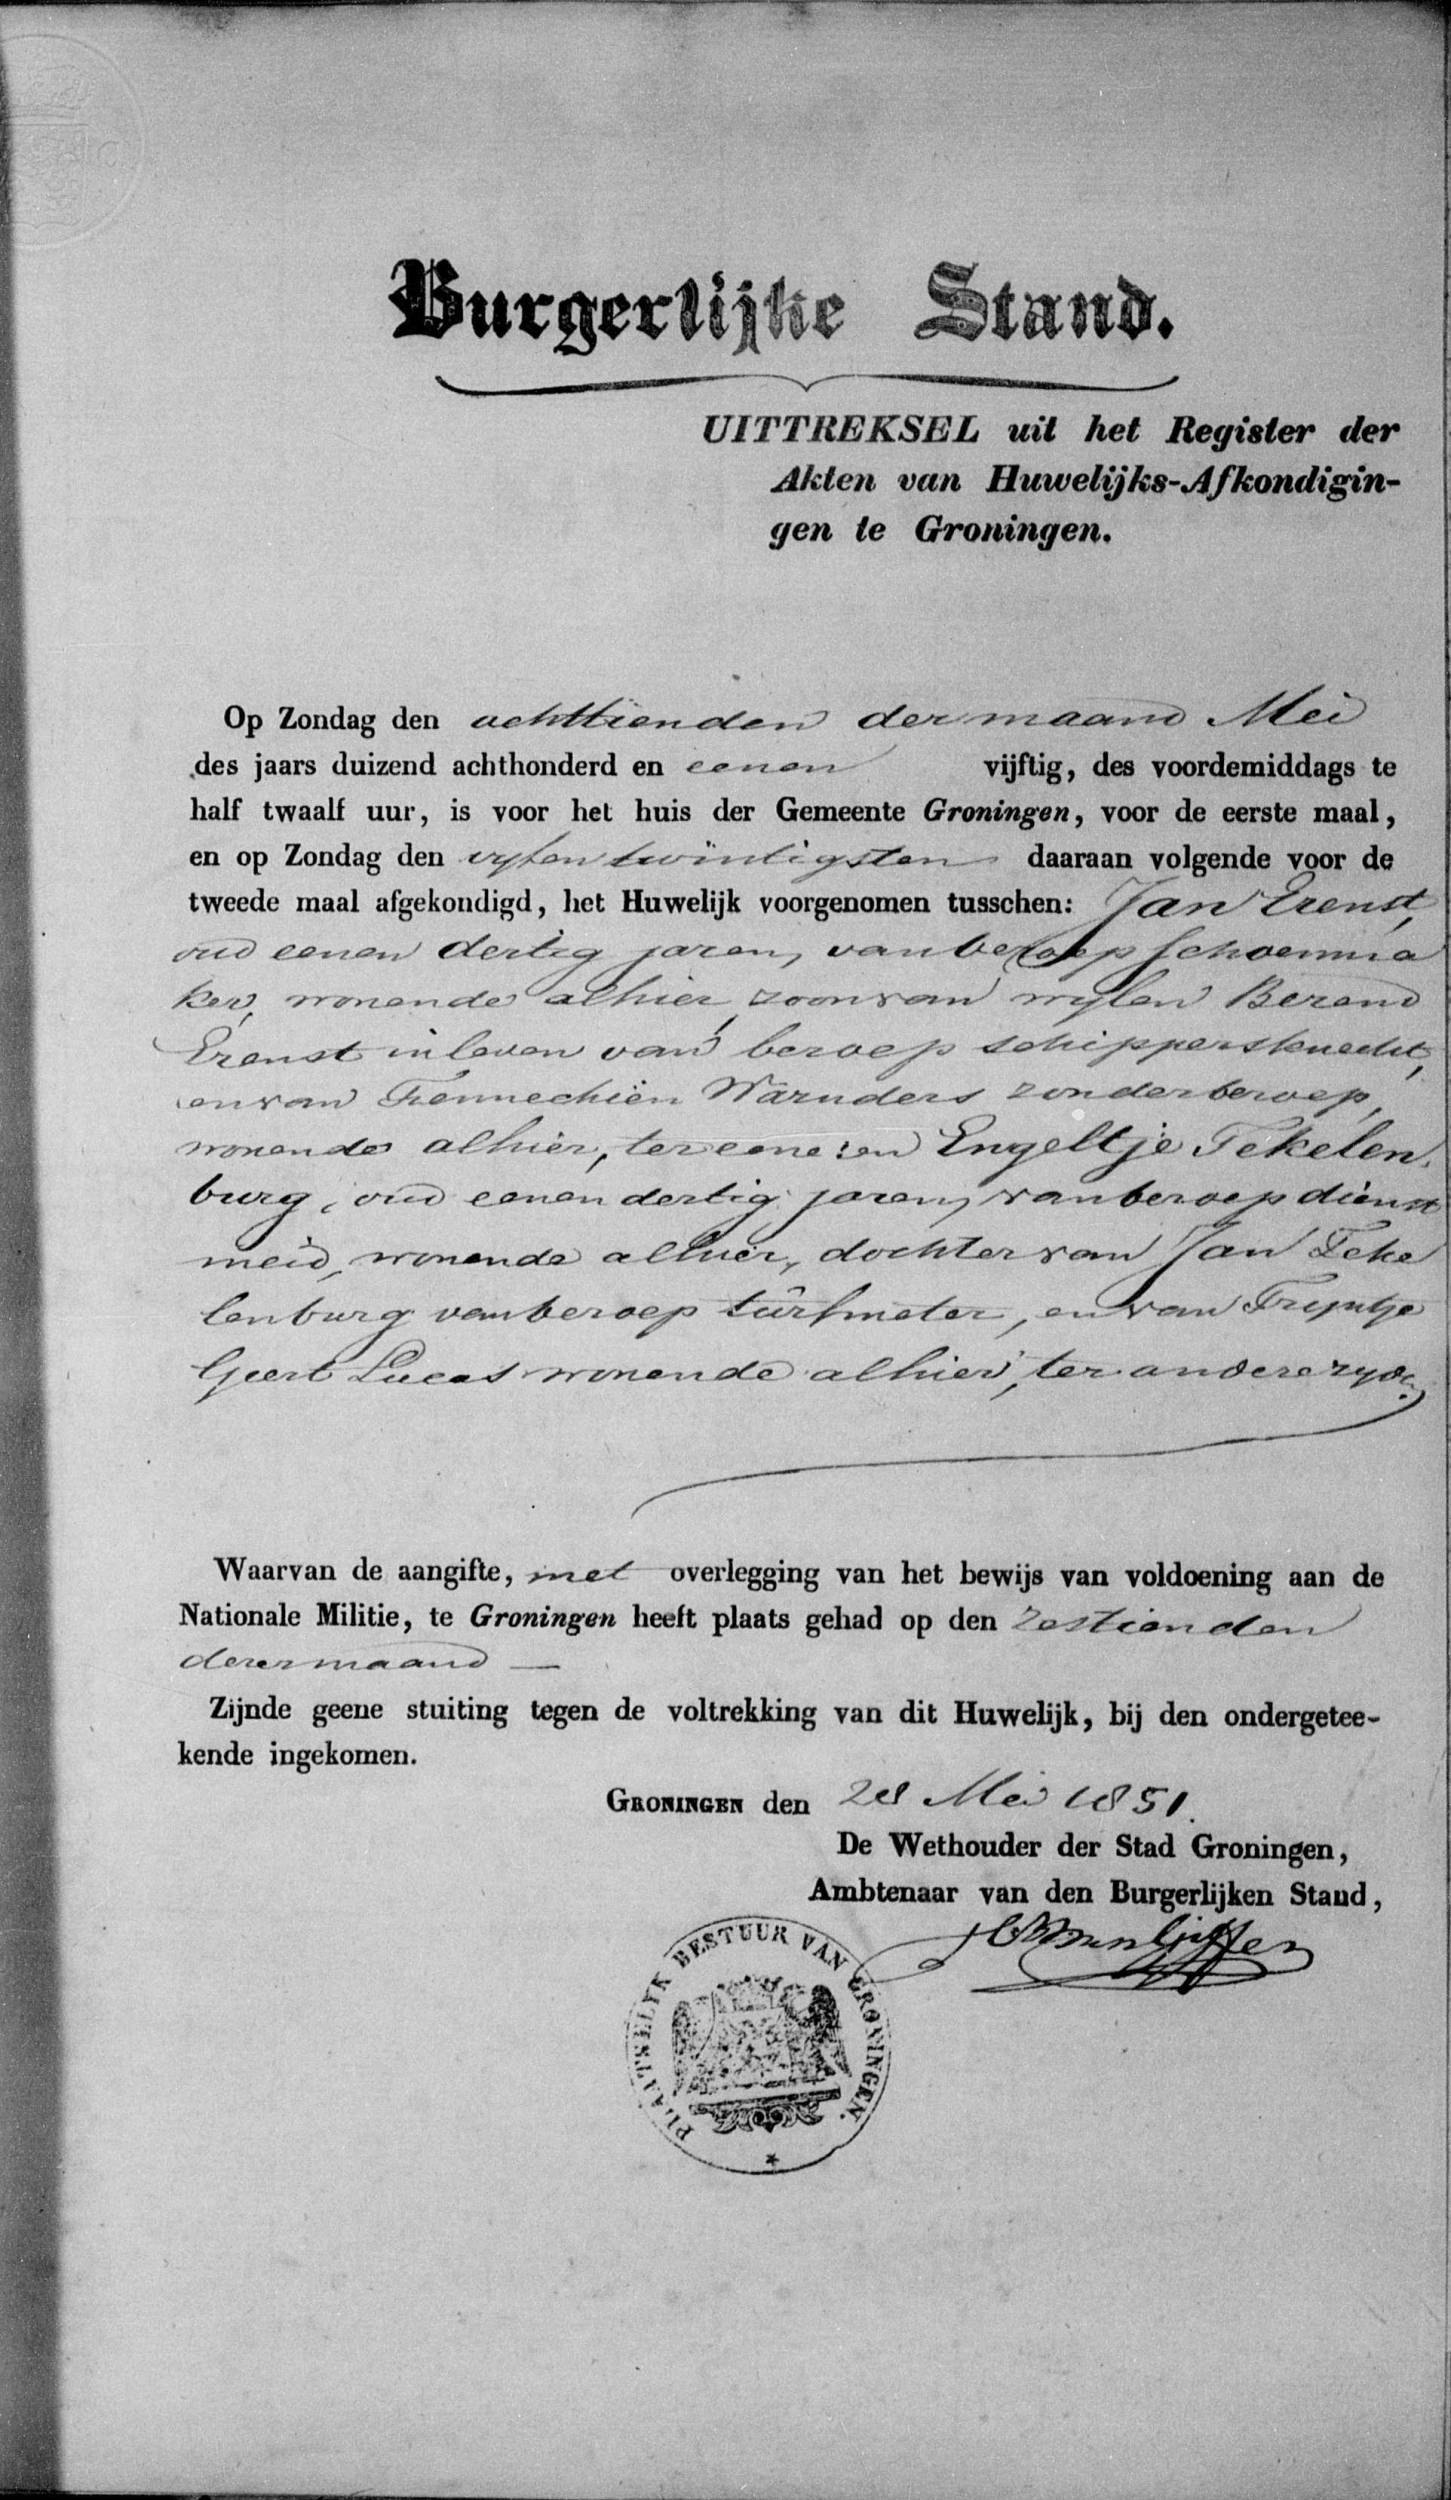 Burgerlijke Stand.
UITTREKSEL uit het Register der
Akten van Huwelijks-Afkondigin-
gen te Groningen.
Op Zondag den achttienden der maand Mei
des jaars duizend achthonderd en eenen vijftig, des voordemiddags te
half twaalf uur, is voor het huis der Gemeente Groningen, voor de eerste maal,
en op Zondag den vyfentwintigsten daaraan volgende voor de
tweede maal afgekondigd, het Huwelijk voorgenomen tusschen: Jan Erenst,
oud eenen dertig jaren, van beroep schoenma
ker, wonende alhier, zoon van wylen Berend
Erenst in leven van beroep schippersknecht,
en van Fennechien Warnders zonder beroep,
wonende alhier, ter eene: en Engeltje Tekelen
burg, oud eenen dertig jaren, van beroep dienst
meid, wonende alhier, dochter van Jan Teke
lenburg van beroep turfmeter, en van Tryntje
Geert Lucas wonende alhier, ter andere zyde.
Waarvan de aangifte, met overlegging van het bewijs van voldoening aan de
Nationale Militie, te Groningen heeft plaats gehad op den zestienden
dezer maand —
Zijnde geene stuiting tegen de voltrekking van dit Huwelijk, bij den ondergetee-
kende ingekomen.
GRONINGEN den 28 Mei 1851.
De Wethouder der Stad Groningen,
Ambtenaar van den Burgerlijken Stand,
PLAATSELYK BESTUUR VAN GRONINGEN.